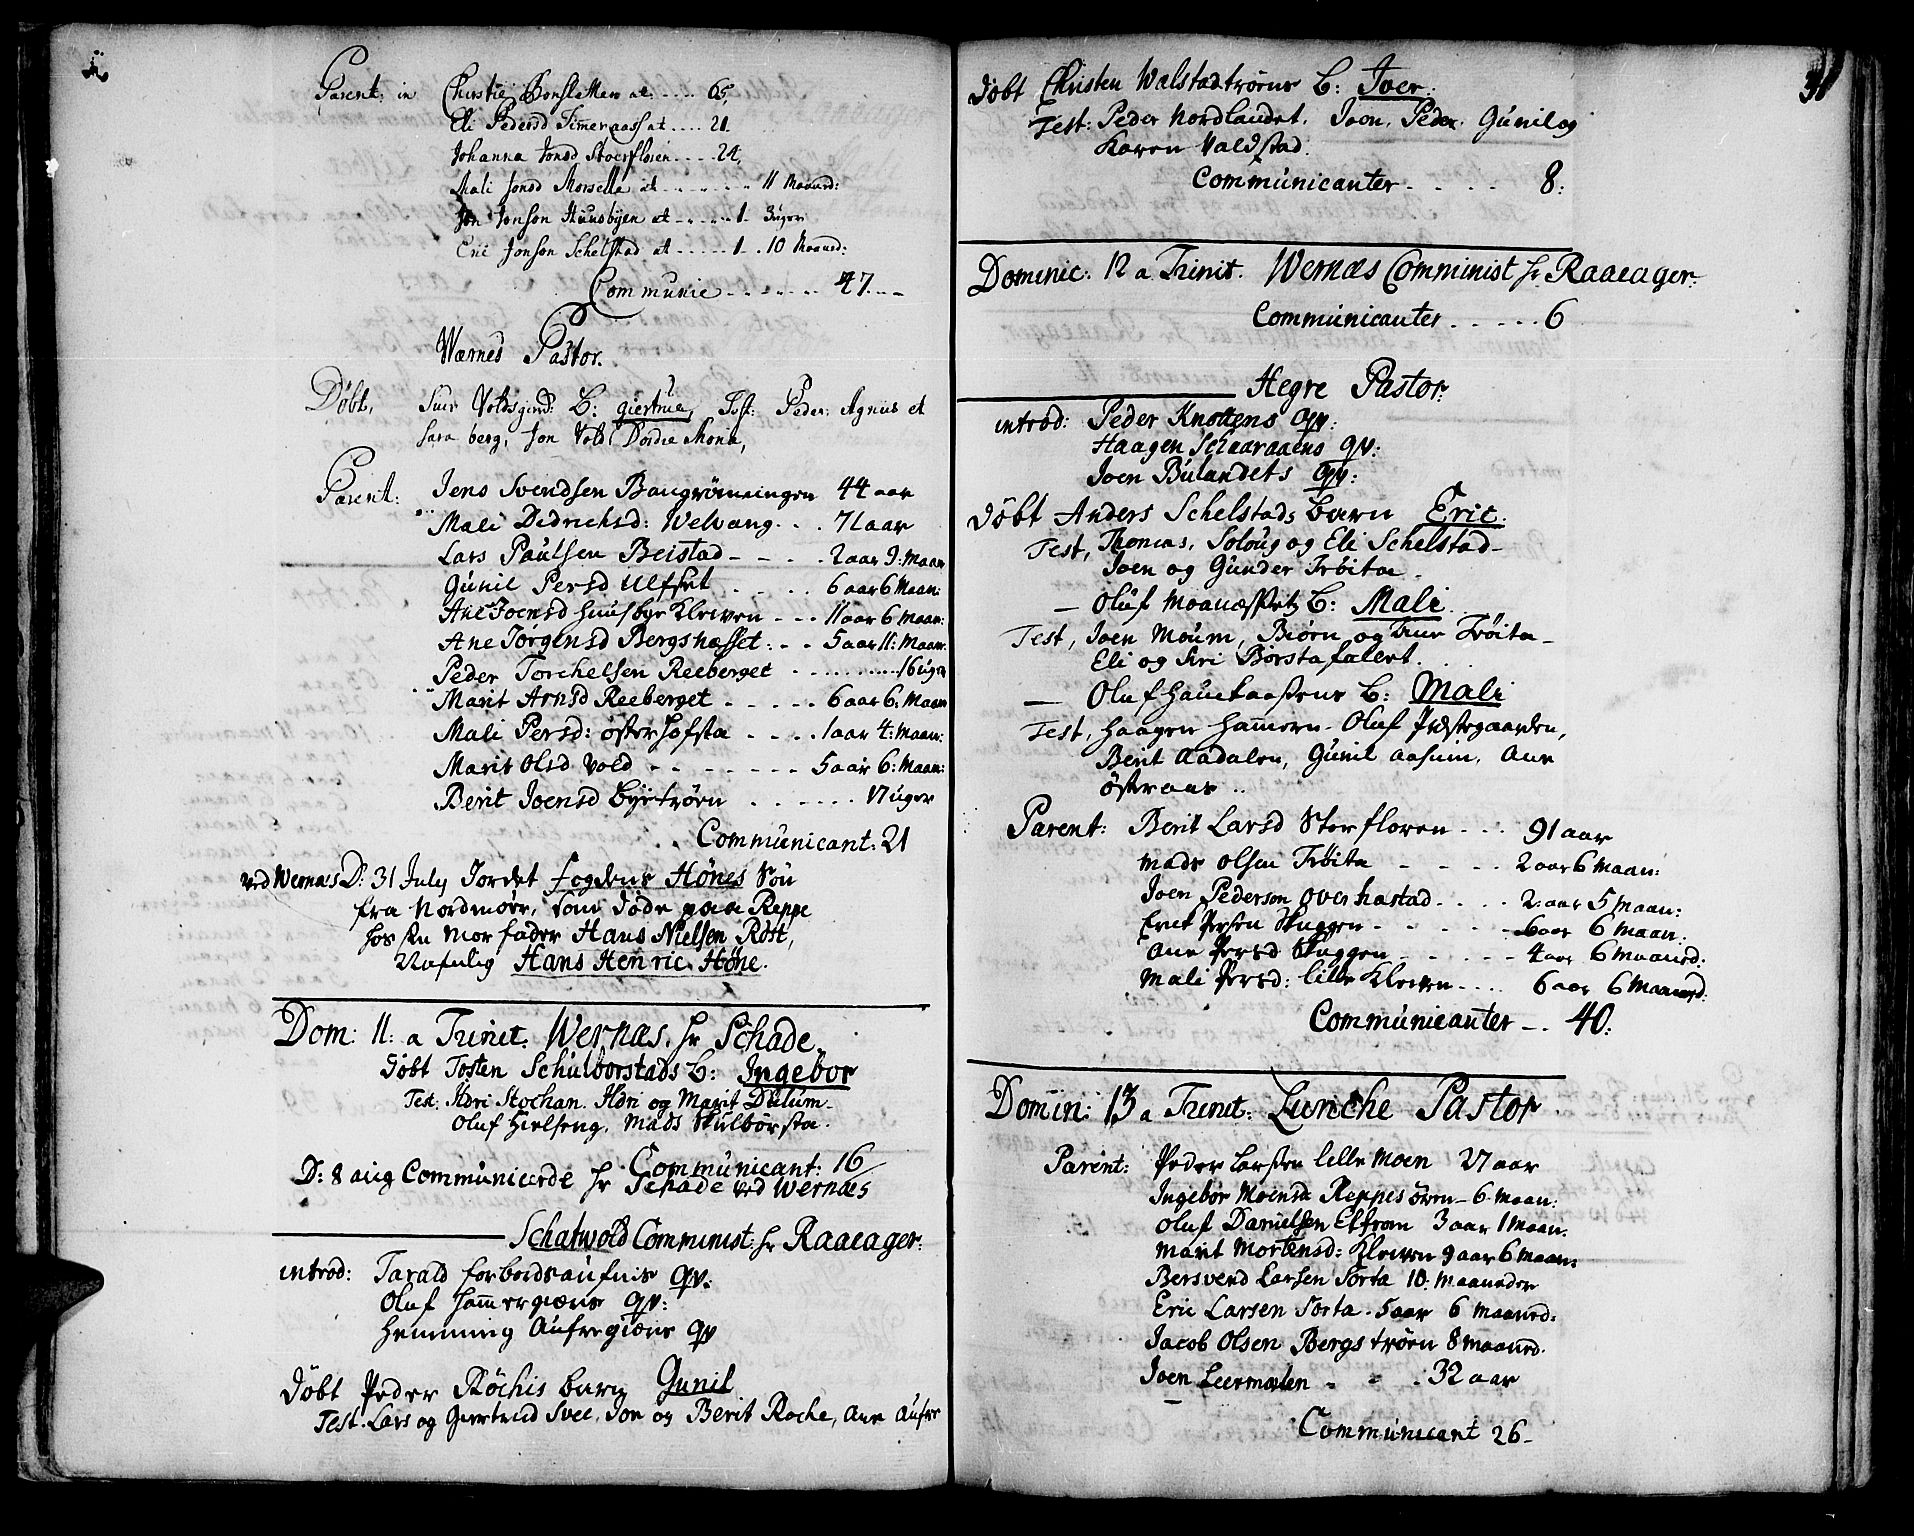 Parent: in Chirstie Bonsletten æt: .... 65,
Eli Pedersd Timeraass at .... 21.
Johanna Jonsd Stoerfloren .... 24,
Mali Jonsd Morsella at ........ 11 Maaned:
Jon Jonson Huusbyen at ...... 1. 3uger
Eric Jonson Schelstad at ..... 1 .. 10 Maaned:
Communic ....... 47...
Wærnes Pastor.
Døbt, Siur Voldsgind: B: giertrue, Test: Peder: Agnus et
Sara berg, Jon Vold, Dordie Mona,
Parent: Jens Svendsen Bangrømeingen 44 aar
Mali Didrichsd: Welvang . . . 71 aar
Lars Paulsen Beistad - - - . 2 aar 9: Maan
Gunil Persd Ulfset . - - - . 6 aar 6 Maan:
Ane Joensd Huusbye Kleiven - - - 11 aar 6 Maan:
Ane Jørgensd Bergshasset: . - 5 aar 11: Maan:
Peder Torchelsen Reeberget .......... 16 uger
Marit Arnsd Reeberget . - - - - 6 aar 6. Maan
Mali Persd: øster Hofsta - - - . 1 aar 4: Maan:
Marit Olsd Vold - - - - - - - 5 aar 6: Maan:
Berit Joensd Byetrøen . . . . . . 17 uger
Communicant: 21
ved Wernæs D: 31 July Jordet fogdens Hönes Sön
fra Nordmöre, som döde paa Reppe
hos sin Morfader Hans Nielsen Röst,
Nafnlig Hans Henric Höne.
Dom: 11: a Trinit. Wernæs. hr Schade.
Døbt Tosten Schulborstads B: Ingebor
Test: Hdri Stochan. Hdri og Marit Dulum-
Oluf Hielseng, Mads Skulbörsta.
Communicant: 16
D: 8 aug Communicerde hr Schade ved Wernæs
Schatwold Communist: hr Raaeager:
introd: Tarald forbordsaufnis qv:
Oluf Hammergiæns qv:
Hemming Aufregiæns qv
Døbt Peder Röchis barn Gunil
Test: Lars og Giertrud Svee, Jon og Berit Roche, Ane Aufre
31
Døbt Christen Walstadtrøens B: Joer:
Test: Peder Nordlandet. Joen, Peder. Gunil og
Karen Valdstad.
Communicanter . . - - . 8:
Dominic: 12 a Trinit. Wernæs Comminist hr Raaeager:
Communicanter . . . . . 6
Hegre Pastor:
introd: Peder Knottens qv:
Haagen Schaaraaens qv:
Joen Bulandets qv:
Døbt Anders Schelstads barn Eric.
Test, Thomas, Soloug og Eli Schelstad-
Joen og Gunder Tröita -
- Oluf Moanæssets B: Mali
Test, Joen Moum, Biörn og Ane Tröita-
Eli og Siri Borstafalert.
- Oluf Hauckaasens B: Mali
Test, Haagen Hammern. Oluf Præstegaarden,
Berit Aadalen, Gunil Aasum, Ane
østraas ..
Parent: Berit Larsd Storfloren - . . 91 aar
Mads Olsen Tröita - - - - 2 aar 6 Maan:
Joen Pederson Overhastad . . . . 2: aar 5 Maan:
Erick Persen Skuggen - . . . . - 6 aar 6 Maan.
Ane Persd Skuggen - - - - - 4 aar 6 Maaned:
Mali Persd: lille Kleiven - . . . 6 aar 6 Maaned:
Communicanter - . 40:
Domin: 13 a Trinit: Luncke Pastor
Parent: Peder Larsen lille Moen 27 aar
Ingebor Moensd Reppesören - 6 Maan:
Oluf Danielsen Effrem 3 aar 1 Maan.
Marit Mortensd: Kleiven 9 aar 6 Maan:
Bersvend Larsen Sorta 10. Maaneder
Eric Larsen Sorta . 5 aar 6 Maaned:
Jacob Olsen Bergstrøen 8 Maaned.
Joen Leermælen . . . 32 aar
Communicant 26-